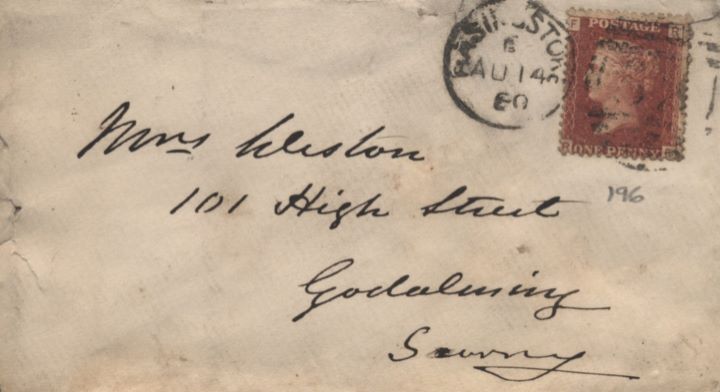 BASINGSTOKE
E
AU 14
80
F POSTAGE R
R ONE PENNY F
Mrs Weston
101 High Street
196
Godalming
Surrey